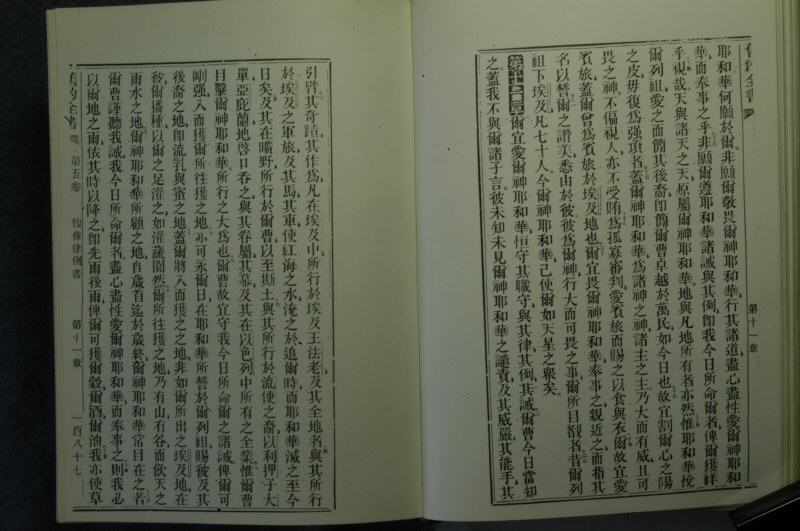 舊約全書
第十一章
耶和華何願於爾非願爾敬畏爾神耶和華行其諸道盡心盡性愛爾神耶和
華而奉事之乎非願爾遵耶和華諸誡與其例即我今日所命爾者俾爾獲祥
乎視哉天與諸天之天原屬爾神耶和華地與凡地所有者亦然惟耶和華悅
爾列祖愛之而簡其後裔即簡爾曹卓越於萬民如今日也故宜割爾心之陽
之皮毋復為強項者蓋爾神耶和華為諸神之神諸主之主乃大而有威且可
畏之神不偏視人亦不受賄為孤寡審判愛賓旅而賜之以食與衣爾故宜愛
賓旅蓋爾曾為賓旅於埃及地也爾宜畏爾神耶和華奉事之親近之而指其
名以誓爾之讚美悉由於彼彼為爾神行大而可畏之事爾所目覩者昔爾列
祖下埃及凡七十人今爾神耶和華已使爾如天星之衆矣
爾宜愛爾神耶和華恒守其職守與其律其例其誡爾曹今日當知
之蓋我不與爾諸子言彼未知未見爾神耶和華之譴責及其威嚴其能手其
引臂其奇蹟其作為凡在埃及中所行於埃及王法老及其全地者與其所行
於埃及之軍旅及其馬其車使紅海之水淹之於追爾時而耶和華滅之至今
日矣及其在曠野所行於爾曹以至斯土與其所行於流便之裔以利押子大
單亞庇蘭地啓口吞之與其眷屬其幕及其在以色列中所有之全業惟爾曹
目擊爾神耶和華所行之大為也爾曹故宜守我今日所命爾之諸誡俾爾可
剛强入而獲爾所往獲之地亦可永爾日在耶和華所誓於爾列祖賜彼及其
後裔之地即流乳與蜜之地蓋爾將入而獲之之地非如爾所出之埃及地在
彼爾播種以爾之足灌之如灌蔬園然爾所往獲之地乃有山有谷而飲天之
雨水之地爾神耶和華所顧之地自歲首迄於歲終爾神耶和華常目在之若
爾曹謹聽我誡我今日所命爾者盡心盡性愛爾神耶和華而奉事之則我必
以爾地之雨依其時以降之即先雨後雨俾爾可獲爾穀爾酒爾油我亦使草
舊約全書
第五卷
復傳律例書
第十一章
一百八十七